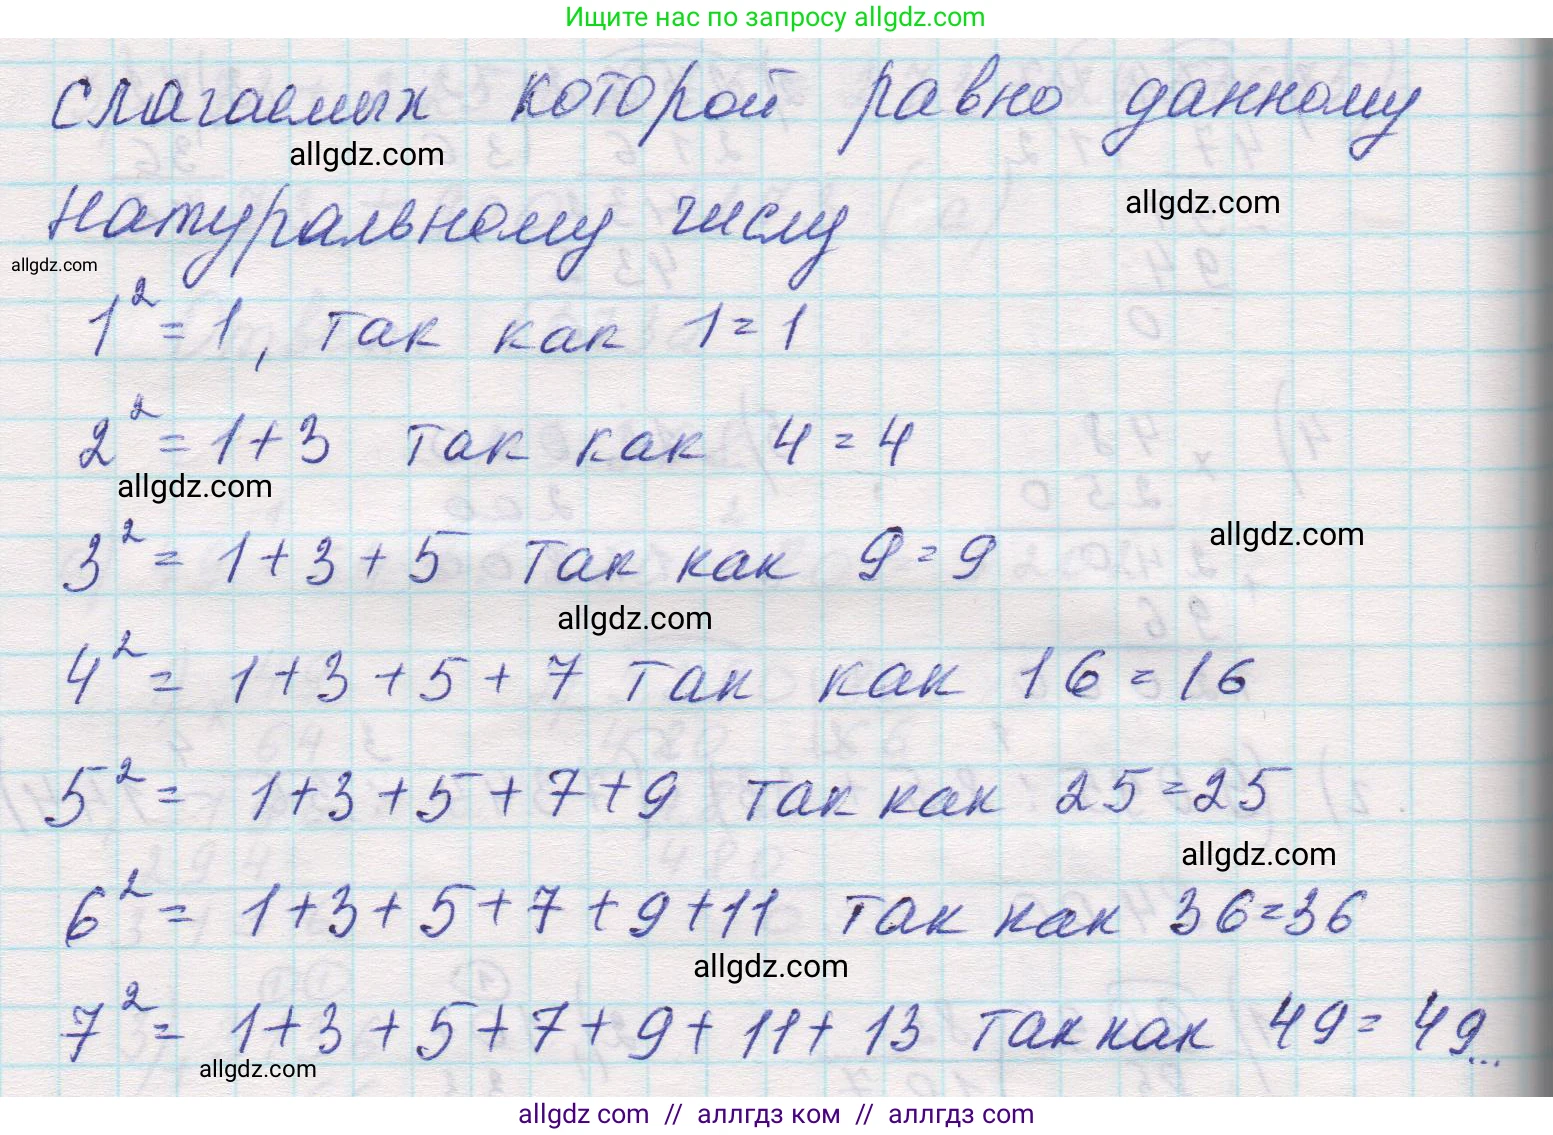 Ищите нас по запросу allgdz.com
слагаемых которой равно данному
allgdz.com
натуральному числу
allgdz.com
allgdz.com
1² = 1, так как 1 = 1
2² = 1 + 3 так как 4 = 4
allgdz.com
3² = 1 + 3 + 5 так как 9 = 9
allgdz.com
allgdz.com
4² = 1 + 3 + 5 + 7 так как 16 = 16
5² = 1 + 3 + 5 + 7 + 9 так как 25 = 25
allgdz.com
6² = 1 + 3 + 5 + 7 + 9 + 11 так как 36 = 36
allgdz.com
7² = 1 + 3 + 5 + 7 + 9 + 11 + 13 так как 49 = 49...
allgdz.com
allgdz com // аллгдз ком // аллгдз com